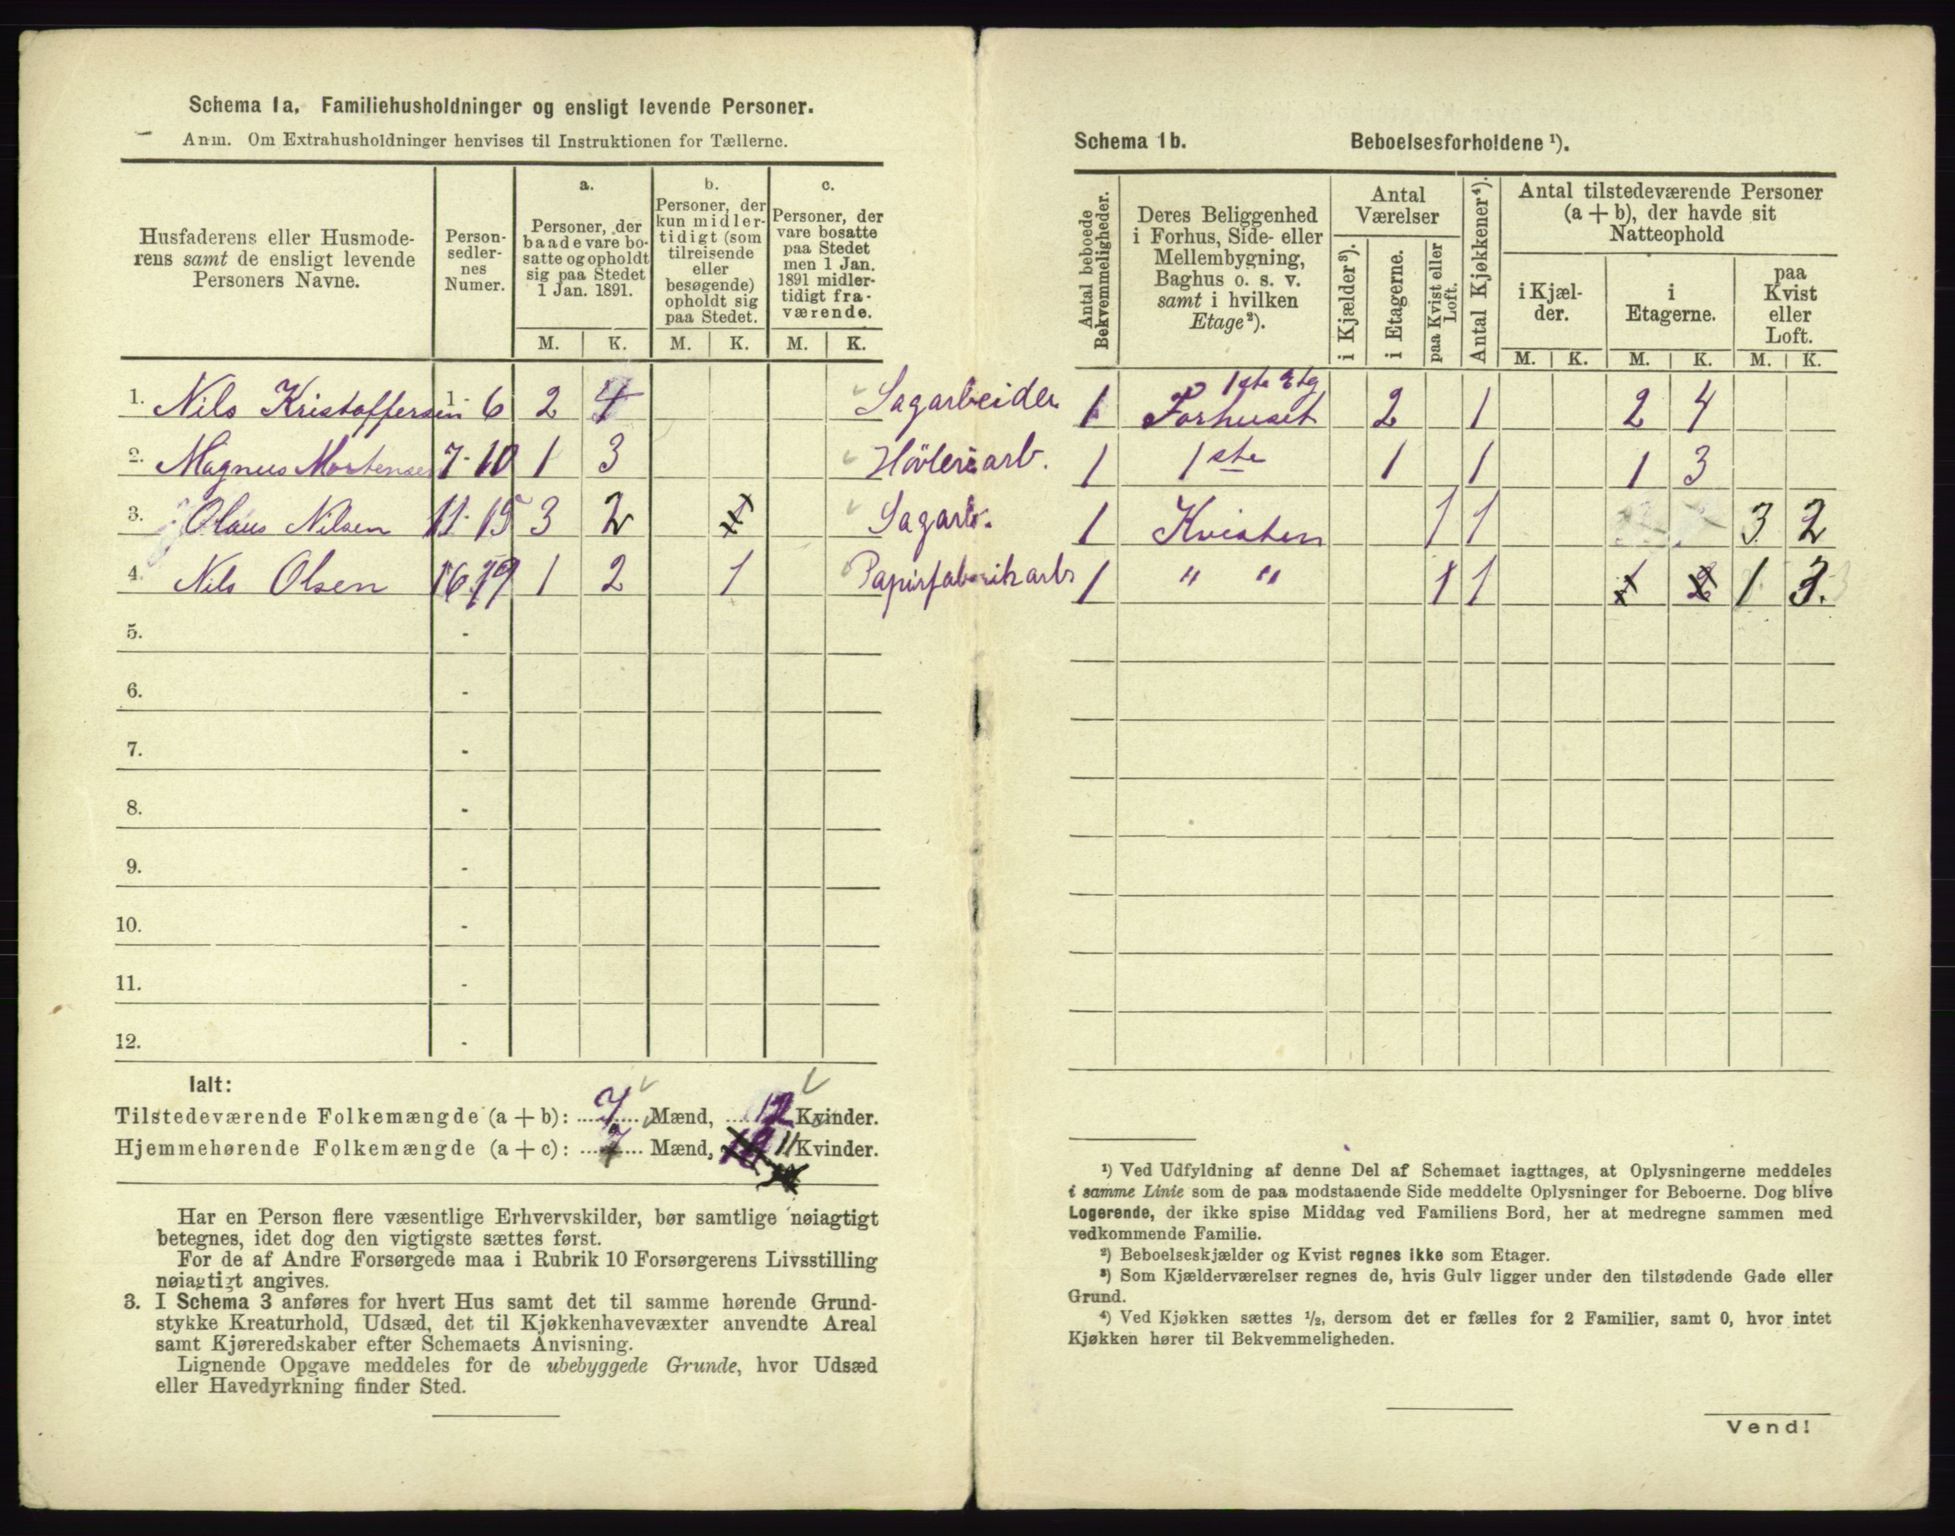 Schema 1a. Familiehusholdninger og ensligt levende Personer.
Anm. Om Extrahusholdninger henvises til Instruktionen for Tællerne.
Husfaderens eller Husmoderens samt de ensligt levende Personers Navne.
Person-sedler-nes Numer.
a. Personer, der baade vare bo-satte og opholdt sig paa Stedet 1 Jan. 1891.
b. Personer, der kun midler-tidigt (som tilreisende eller besøgende) opholdt sig paa Stedet.
c. Personer, der vare bosatte paa Stedet men 1 Jan. 1891 midler-tidigt fra-værende.
M. K. M. K. M. K.
1. Nils Kristoffersen 1 - 6 2 4 Sagarbeider
2. Magnus Mortensen 7 - 10 1 3 Høvleriarb.
3. Olaus Nilsen 11 - 15 3 2 Sagarb.
4. Nils Olsen 16 19 1 2 1 Papirfabrikarb
5. -
6. -
7. -
8. -
9. -
10. -
11. -
12. -
Ialt:
Tilstedeværende Folkemængde (a + b): 7 Mænd, 12 Kvinder.
Hjemmehørende Folkemængde (a + c): 7 Mænd, 11 Kvinder.
Har en Person flere væsentlige Erhvervskilder, bør samtlige nøiagtigt
betegnes, idet dog den vigtigste sættes først.
For de af Andre Forsørgede maa i Rubrik 10 Forsørgerens Livsstilling
nøiagtigt angives.
3. I Schema 3 anføres for hvert Hus samt det til samme hørende Grund-
stykke Kreaturhold, Udsæd, det til Kjøkkenhavevæxter anvendte Areal
samt Kjøreredskaber efter Schemaets Anvisning.
Lignende Opgave meddeles for de ubebyggede Grunde, hvor Udsæd
eller Havedyrkning finder Sted.
Schema 1b. Beboelsesforholdene ¹).
Antal beboede Bekvemmeligheder.
Deres Beliggenhed i Forhus, Side- eller Mellembygning, Baghus o. s. v. samt i hvilken Etage²).
Antal Værelser
i Kjælder³).
i Etagerne.
paa Kvist eller Loft.
Antal Kjøkkener⁴).
Antal tilstedeværende Personer (a + b), der havde sit Natteophold
i Kjæl-der.
i Etagerne.
paa Kvist eller Loft.
M. K. M. K. M. K.
1 Forhuset 1ste Etg 2 1 2 4
1 1ste 1 1 1 3
1 Kvisten 1 1 3 2
1 " " 1 1 1 2 1 3.
¹) Ved Udfyldning af denne Del af Schemaet iagttages, at Oplysningerne meddeles
i samme Linie som de paa modstaaende Side meddelte Oplysninger for Beboerne. Dog blive
Logerende, der ikke spise Middag ved Familiens Bord, her at medregne sammen med
vedkommende Familie.
²) Beboelseskjælder og Kvist regnes ikke som Etager.
³) Som Kjælderværelser regnes de, hvis Gulv ligger under den tilstødende Gade eller
Grund.
⁴) Ved Kjøkken sættes ½, dersom det er fælles for 2 Familier, samt 0, hvor intet
Kjøkken hører til Bekvemmeligheden.
Vend!